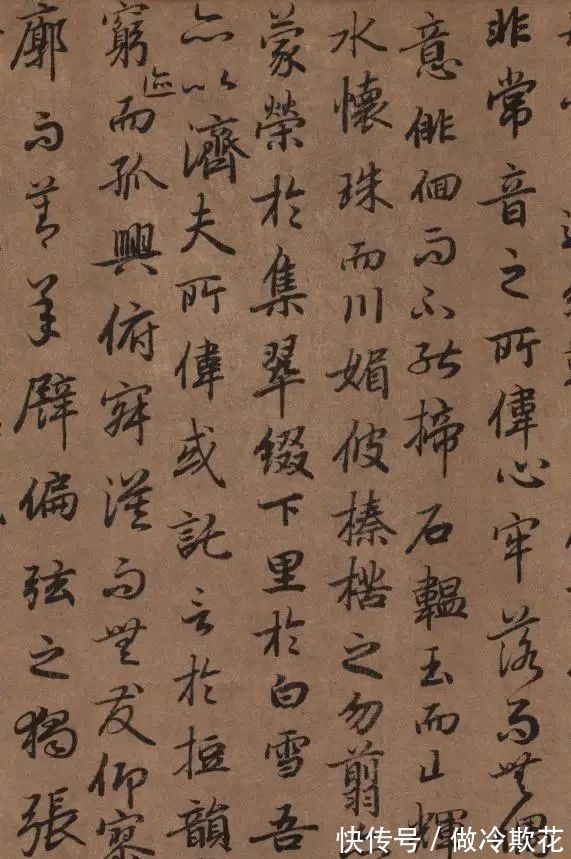 非常音之所偉心牢落而無偶
意俳佪而不能揥石韞玉而山輝
水懷珠而川媚彼榛楛之勿翦
蒙榮於集翠綴下里於白雪吾
亦以濟夫所偉或託言於短韻
窮迹而孤興俯寂漠而無友仰寥
廓而莫承譬偏弦之獨張
快传号/做冷欺花